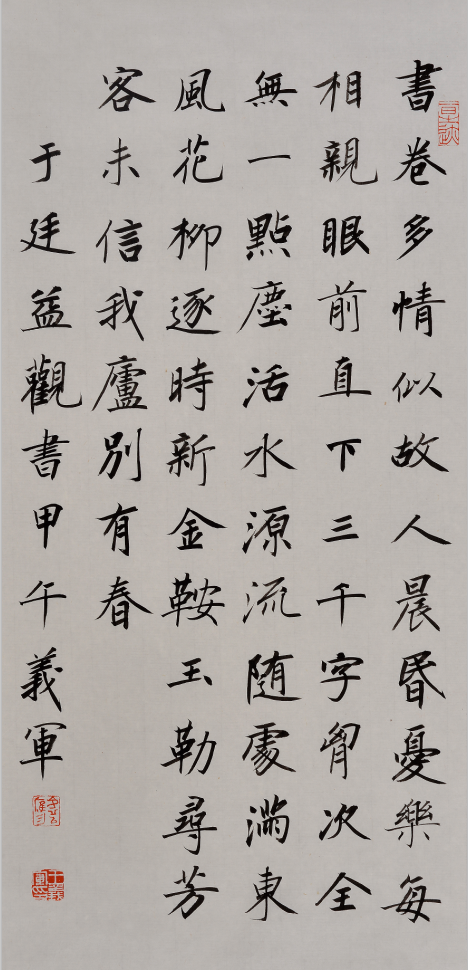 書卷多情似故人晨昏憂樂每
相親眼前直下三千字胷次全
無一點塵活水源流随處滿東
風花柳逐時新金鞍玉勒尋芳
客未信我廬別有春
于廷益觀書甲午義軍